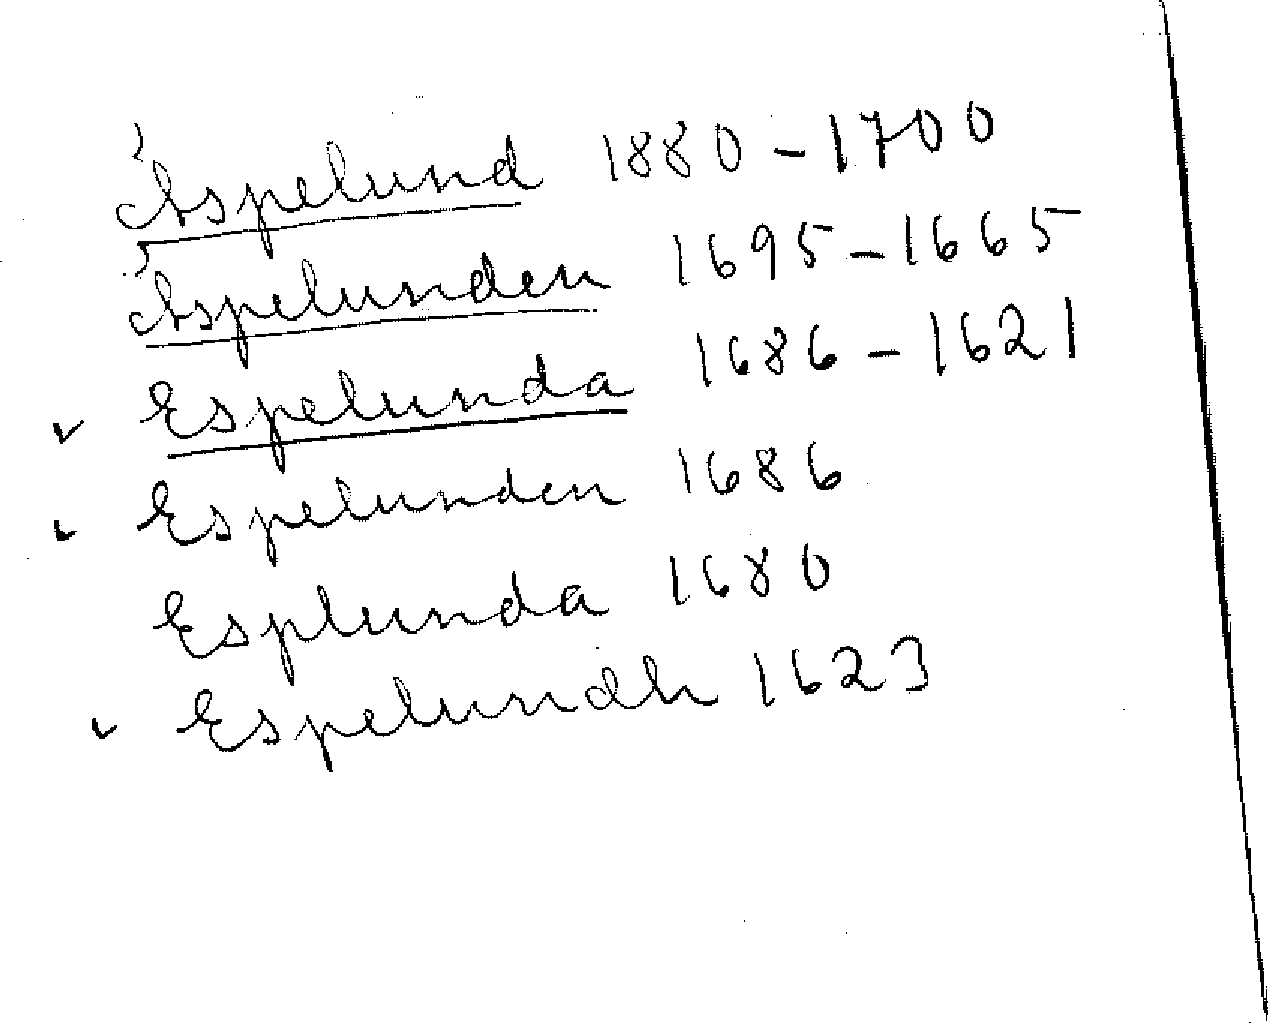 Äspelund 1880-1700
Äspelunden 1695-1665
✓ Espelunda 1686-1621
✓ Espelunden 1686
Esplunda 1680
✓ Espelundh 1623